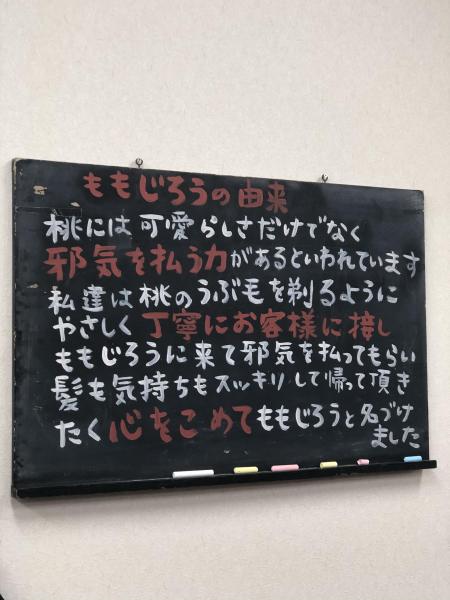 ももじろうの由来
桃には可愛らしさだけでなく
邪気を払う力があるといわれています
私達は桃のうぶ毛を剃るように
やさしく丁寧にお客様に接し
ももじろうに来て邪気を払ってもらい
髪も気持ちもスッキリして帰って頂き
たく心をこめてももじろうと名づけ
ました